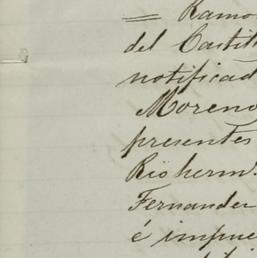 = Ramo
del Castill
notificad
Moreno
presentes
Rio herm.
Fernander
é impue